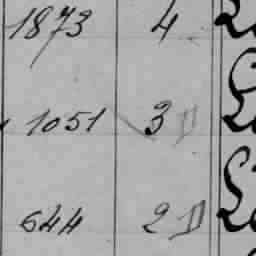 1873 4
1051 3 D
644 2 D